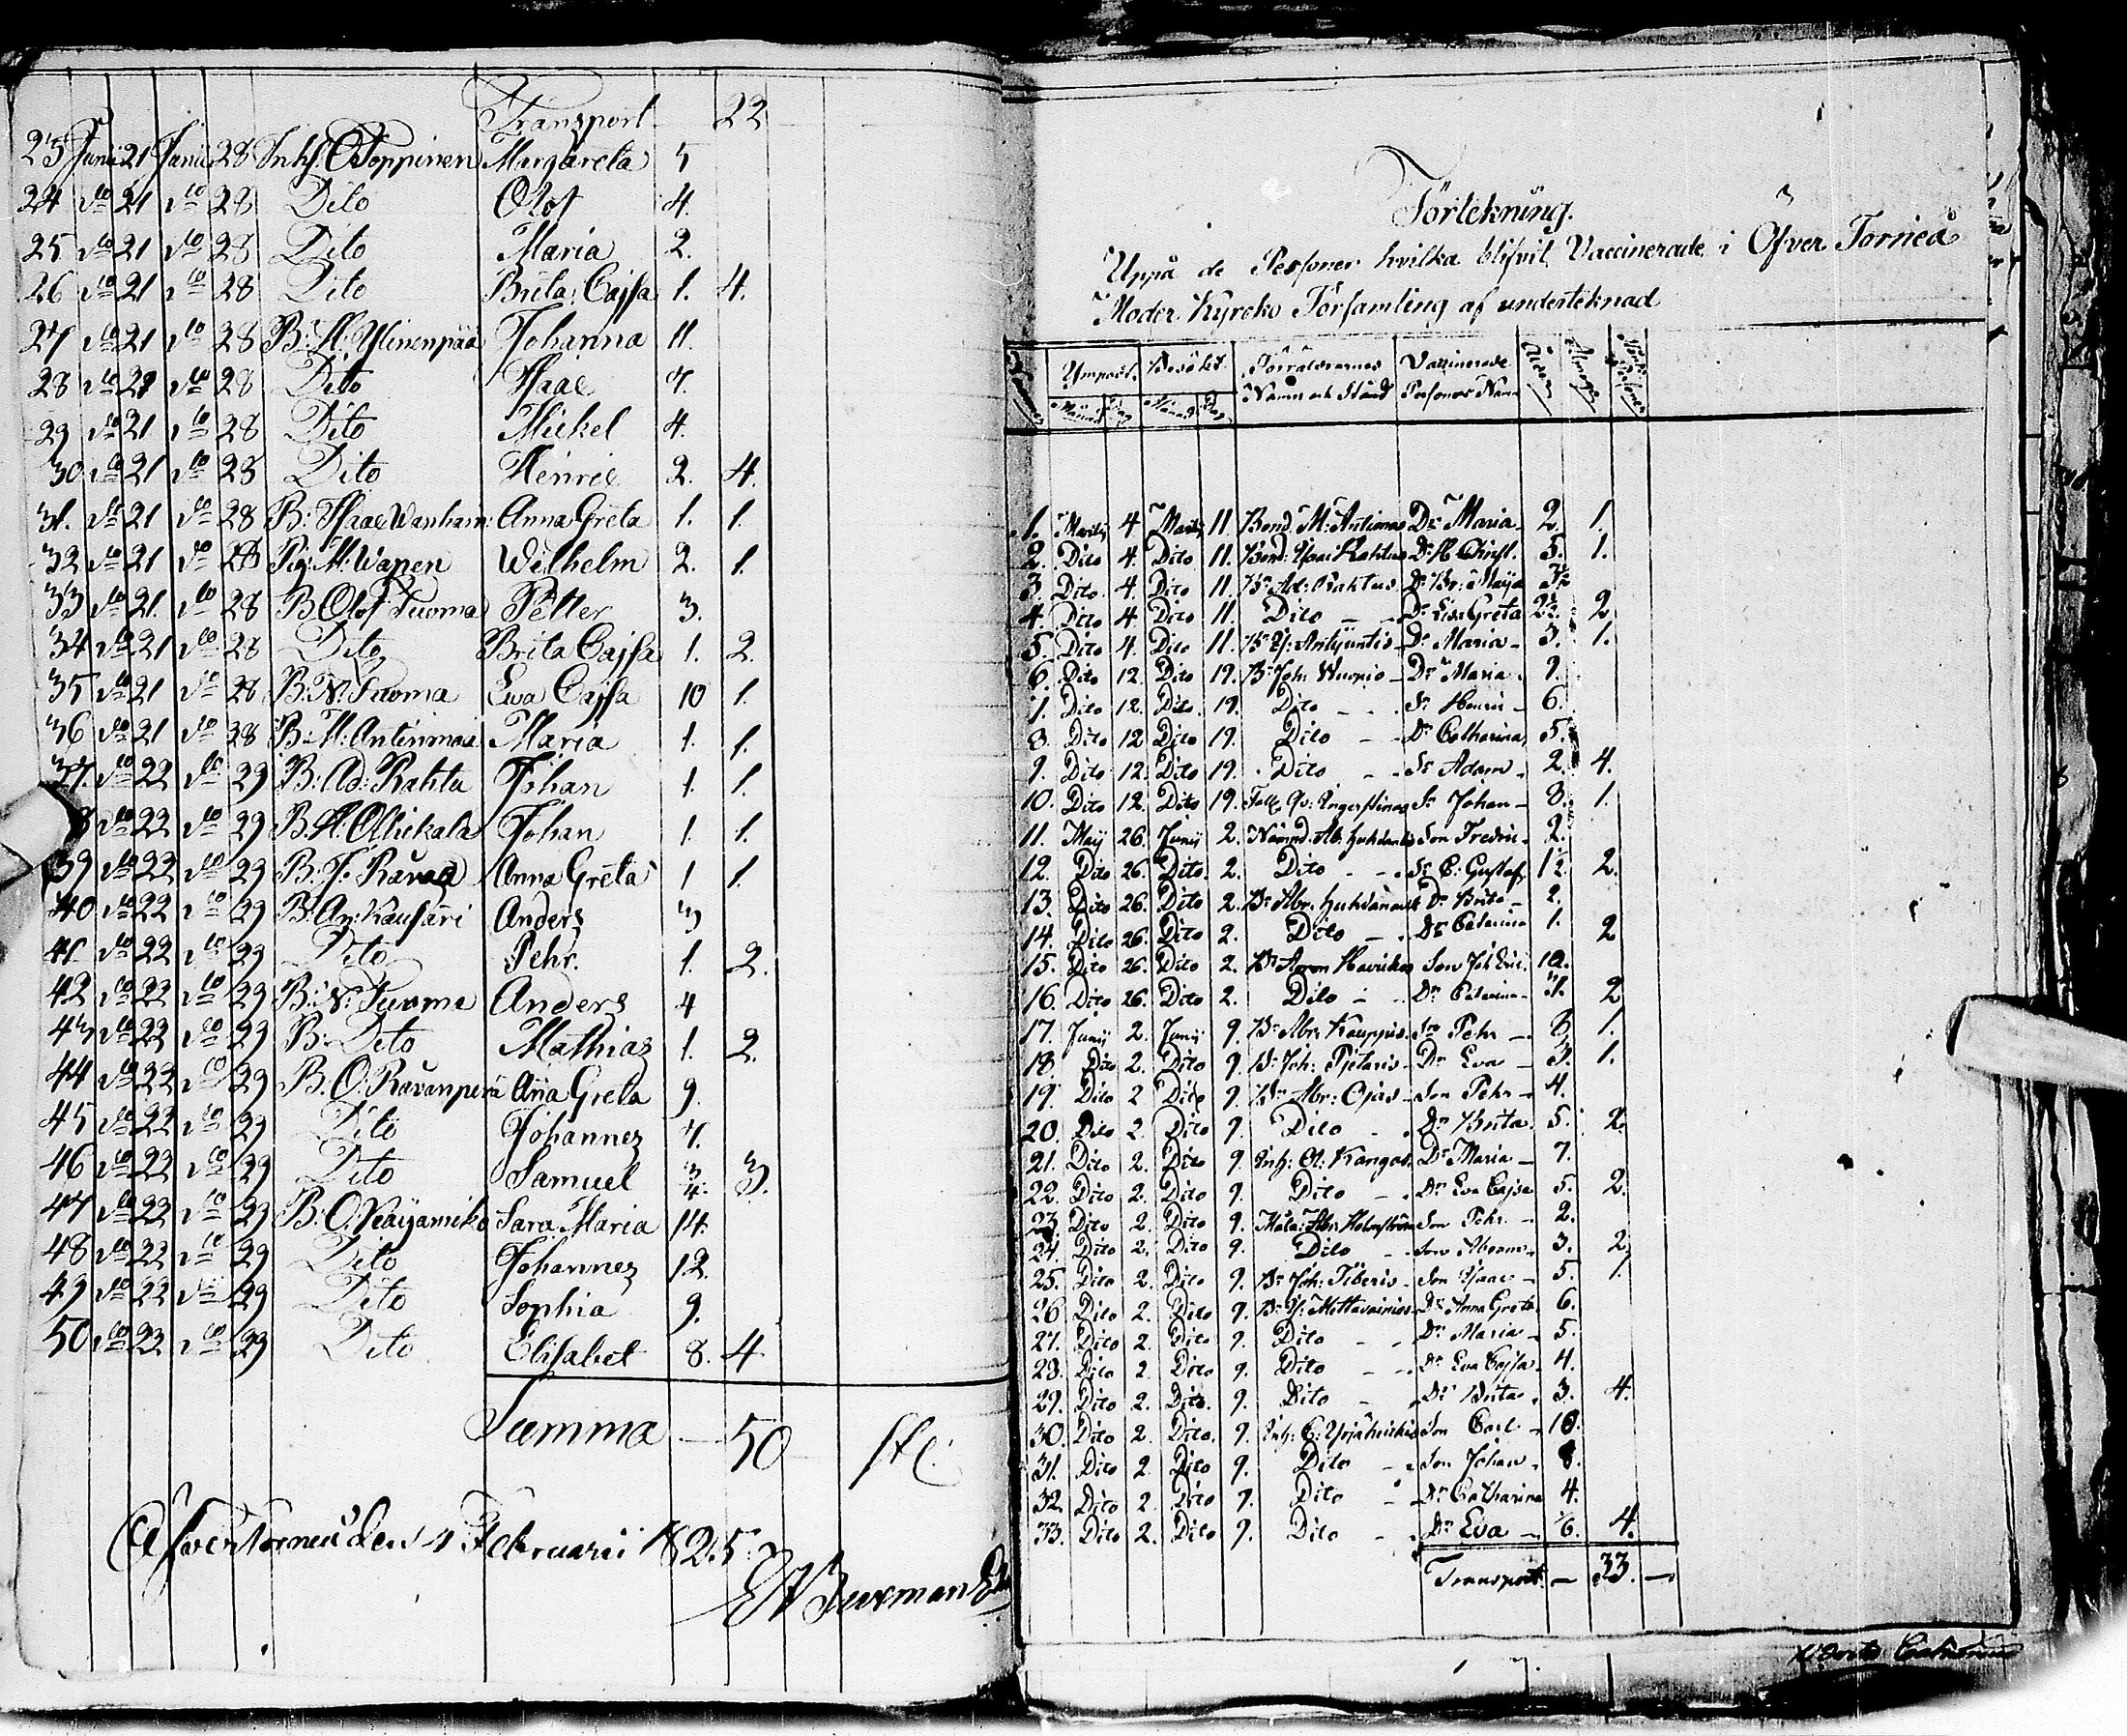 Transport 22
23 Junii 21 Junii 28 Inhs. O Poppinen Margareta 5
24 do 21 do 28 Dito Olof 4.
25 do 21 do 28 Dito Maria 2.
26 do 21 do 28 Dito Brita Cajsa 1. 4.
27 do 21 do 28 B: H: Ylinenpää Johanna 11.
28 do 21 do 28 Dito Isaac 7.
29 do 21 do 28 Dito Mickel 4.
30 do 21 do 28 Dito Henric 2. 4.
31. do 21 do 28 B: Isaac Wanham: Anna Greta 1. 1.
32 do 21 do 28 Pig. M: Wapen Wilhelm 2. 1.
33 do 21. do 28 B Olof Tuoma Petter 3.
34 do 21 do 28 Dito Brita Cajsa 1. 2.
35 do 21 do 28 B. N. Tuoma Eva Cajsa 10 1.
36 do 21 do 28 B: M: Antinmaa Maria 1. 1.
37. do 22 do 29 B: Ad: Rahtu Johan 1. 1.
8 do 22 do 29 B. H: Ollickala Johan 1. 1.
39 do 22 do 29 B: J. Anna Greta 1 1.
40 do 22 do 29 B: An: Anders 3
41 do 22 do 29 Dito Pehr. 1. 2.
42 do 22 do 29 B: N: Tuoma Anders 4
43 do 22 do 29 B. Dito Mathias 1. 2.
44 do 22 do 29 B. O. Ravanperä Ana Greta 9.
45 do 22 do 29 Dito Johannes 7.
46 do 22 do 29 Dito Samuel 3. 3.
47 do 22 do 29 B: O: Sara Maria 14.
48 do 22 do 29 Dito Johannes 12.
49 do 22 do 29 Dito Sophia 9.
50 do 22 do 29 Dito Elisabet 8. 4
Summa — 50
Öfvertorneå den 4 Februarii 1825
Förtekning.
Uppå de Personer hvilka blifvit Vaccinerade i Öfver Torneå
Moder Kyrcko Församling af underteknad
Ympad. Besökt. Föräldrarnes Vaccinerade
Månad Dag Månad Dag Namn och Stånd Personers Namn
1. Martij 4 Martij 11. Bond. M: Antinmaa Dr Maria 2. 1.
2. Dito 4. Dito 11. Bond: Isac Rahtus Dr H Christ. 5. 1.
3. Dito 4. Dito 11. Bn Ad: Rahtus Dr Br: Maija
4. Dito 4. Dito 11. Dito Dr Eva Greta 2
5. Dito 4. Dito 11. Dr Maria 3. 1.
6. Dito 12. Dito 19. Bn Joh: Wuopio Dr Maria 9.
7. Dito 12. Dito. 19. Dito Sn Henric 6.
8. Dito 12 Dito 19. Dito Dr Catharina 5.
9. Dito 12. Dito 19. Dito Sn Adam 2. 4.
10. Dito 12. Dito 19. Sn Johan 8. 1.
11. Maij 26. Junij 2. Nämnd. Ab. Son Fredric 2.
12. Dito 26. Dito. 2. Dito Sn C: Gustaf 2.
13. Dito 26. Dito 2. Bn Abr. Dr Brita 2.
14. Dito 26. Dito 2. Dito Dr Catarina 1. 2
15. Dito 26. Dito 2. Bn Aron Son Joh Eric 10.
16. Dito 26. Dito 2. Dito Dr Catarina 7. 2
17. Junij 2. Junij 9. Bn Abr: Kauppis Sn Pehr 1.
18. Dito 2. Dito 9. Bn Joh: Pietaris Dr Eva 3. 1.
19. Dito 2 Dito 9. Bn Abr: Ojas Son Pehr 4.
20. Dito 2. Dito 9. Dito Dr Brita 5. 2.
21. Dito 2. Dito 9. Inh: Ol: Kangas Dr Maria 7.
22. Dito 2. Dito 9. Dito Dr Eva Cajsa 5. 2.
23. Dito 2. Dito 9. Abr: Holmström Son Pehr 2.
24. Dito 2. Dito 9. Dito Son Abram 3. 2.
25. Dito 2. Dito 9. Bn Joh: Tiberis Son Isaac 5. 1.
26 Dito 2. Dito 9. Bn Is: Mettavainios Dr Anna Greta 6.
27. Dito 2. Dito 9. Dito Dr Maria 5.
28. Dito 2. Dito 9. Dito Dr Eva Cajsa 4.
29. Dito 2. Dito. 9. Dito Dr Brita 3. 4.
30. Dito 2. Dito. 9. Inh: C: Yrjäheikis Son Carl 10.
31. Dito 2. Dito 9. Dito Son Johan 8.
32. Dito 2. Dito 9. Dito Dr Catharina 4.
33. Dito 2. Dito 9. Dito Dr Eva 4.
Transport — 33. —